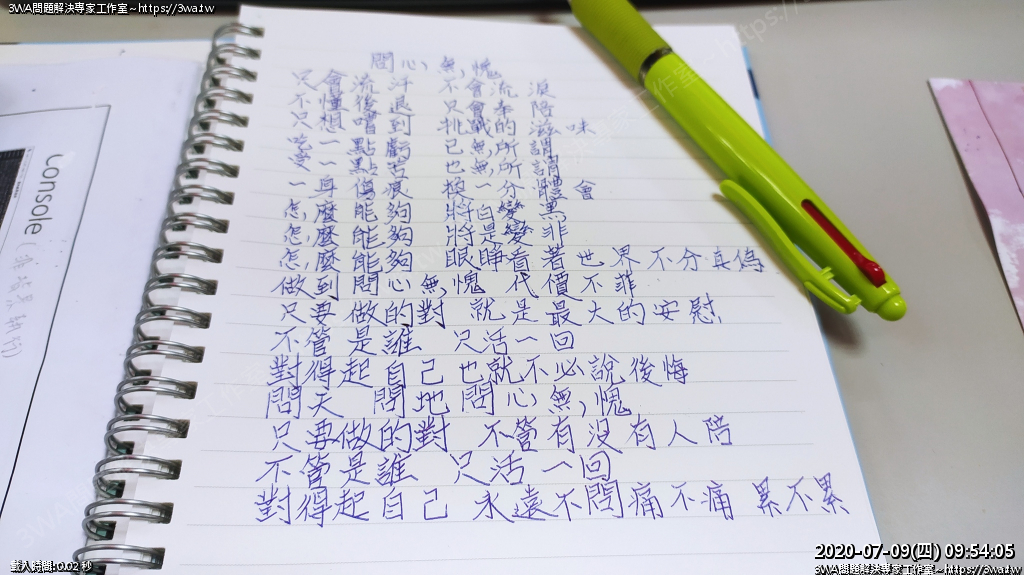 3WA問題解決專家工作室~https://3wa.tw
問心無愧
只會流汗 不會流淚
不懂後退 只會奉陪
只想嚐到 挑戰的滋味
吃一點虧 已無所謂
受一點苦 也無所謂
一身傷痕 換一分體會
怎麼能夠 將白變黑
怎麼能夠 將是變非
怎麼能夠 眼睜看著世界不分真偽
做到問心無愧 代價不菲
只要做的對 就是最大的安慰
不管是誰 只活一回
對得起自己也就不必說後悔
問天 問地問心無愧
只要做的對 不管有沒有人陪
不管是誰 只活一回
對得起自己 永遠不問痛不痛 累不累
console
載入時間:0.02 秒
2020-07-09(四) 09:54:05
3WA問題解決專家工作室~https://3wa.tw